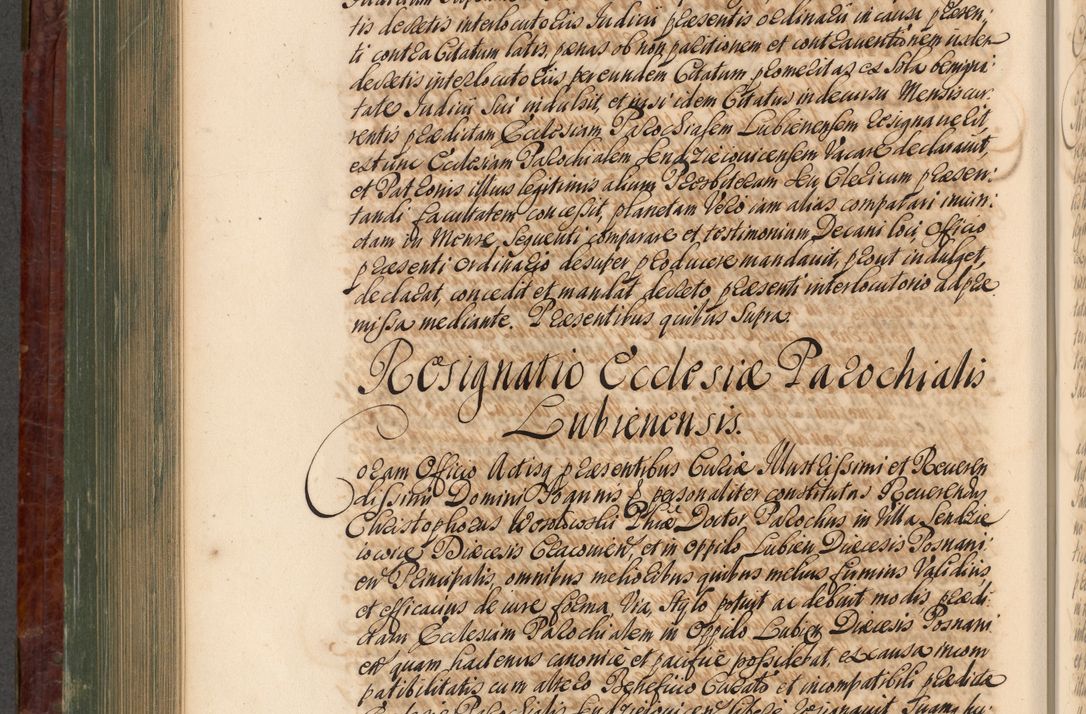 tis decretis interlocutoriis Judicii praesentis ordinarii in causa praesen-
ti contra Citatum latis, paenas ob non paritionem et contraventionem iisdem
decretis interlocutoriis per eundem Citatum promeritas ex sola benigni-
tate Judicii sui indulsit, et nisi idem Citatus in decursu Mensis cur-
rentis praedictam Ecclesiam Parochialem Lubienensem resignaverit
ex tunc Ecclesiam Parochialem Sendzieiovicensem Vacare declaravit,
et Patronis illius legitimis alium Praesbiterum seu Clericum praesen-
tandi facultatem concessit, planetam Vero iam alias comparari iniun-
ctam in Mense Sequenti comparare et testimonium Decani loci Officio
praesenti ordinario desuper producere mandavit, prout indulget,
declarat, concedit et mandat decreto praesenti interlocutorio ad prae
missa mediante. Praesentibus quibus supra.
Resignatio Ecclesiae Parochialis
Lubienensis.
Coram Officio Actisq praesentibus Curiae Illustrissimi et Reveren
dissimi Domini Joannis personaliter constitutus Reverendus
Christophorus Phiae Doctor Parochus in Villa Sendzie
iowice Diaecesis Cracovien, et in oppido Lubien Diaecesis Posnani-
en Principalis, omnibus melioribus quibus melius firmius Validius
et efficacius de iure forma Via Stylo potuit ac debuit modis praedi-
ctam Ecclesiam Parochialem in Oppido Lubien Diaecesis Posnani
en quam hactenus canonice et pacifice possidebat, ex causa incom
patibilitatis cum altero Beneficio Curato et incompatibili praedicta